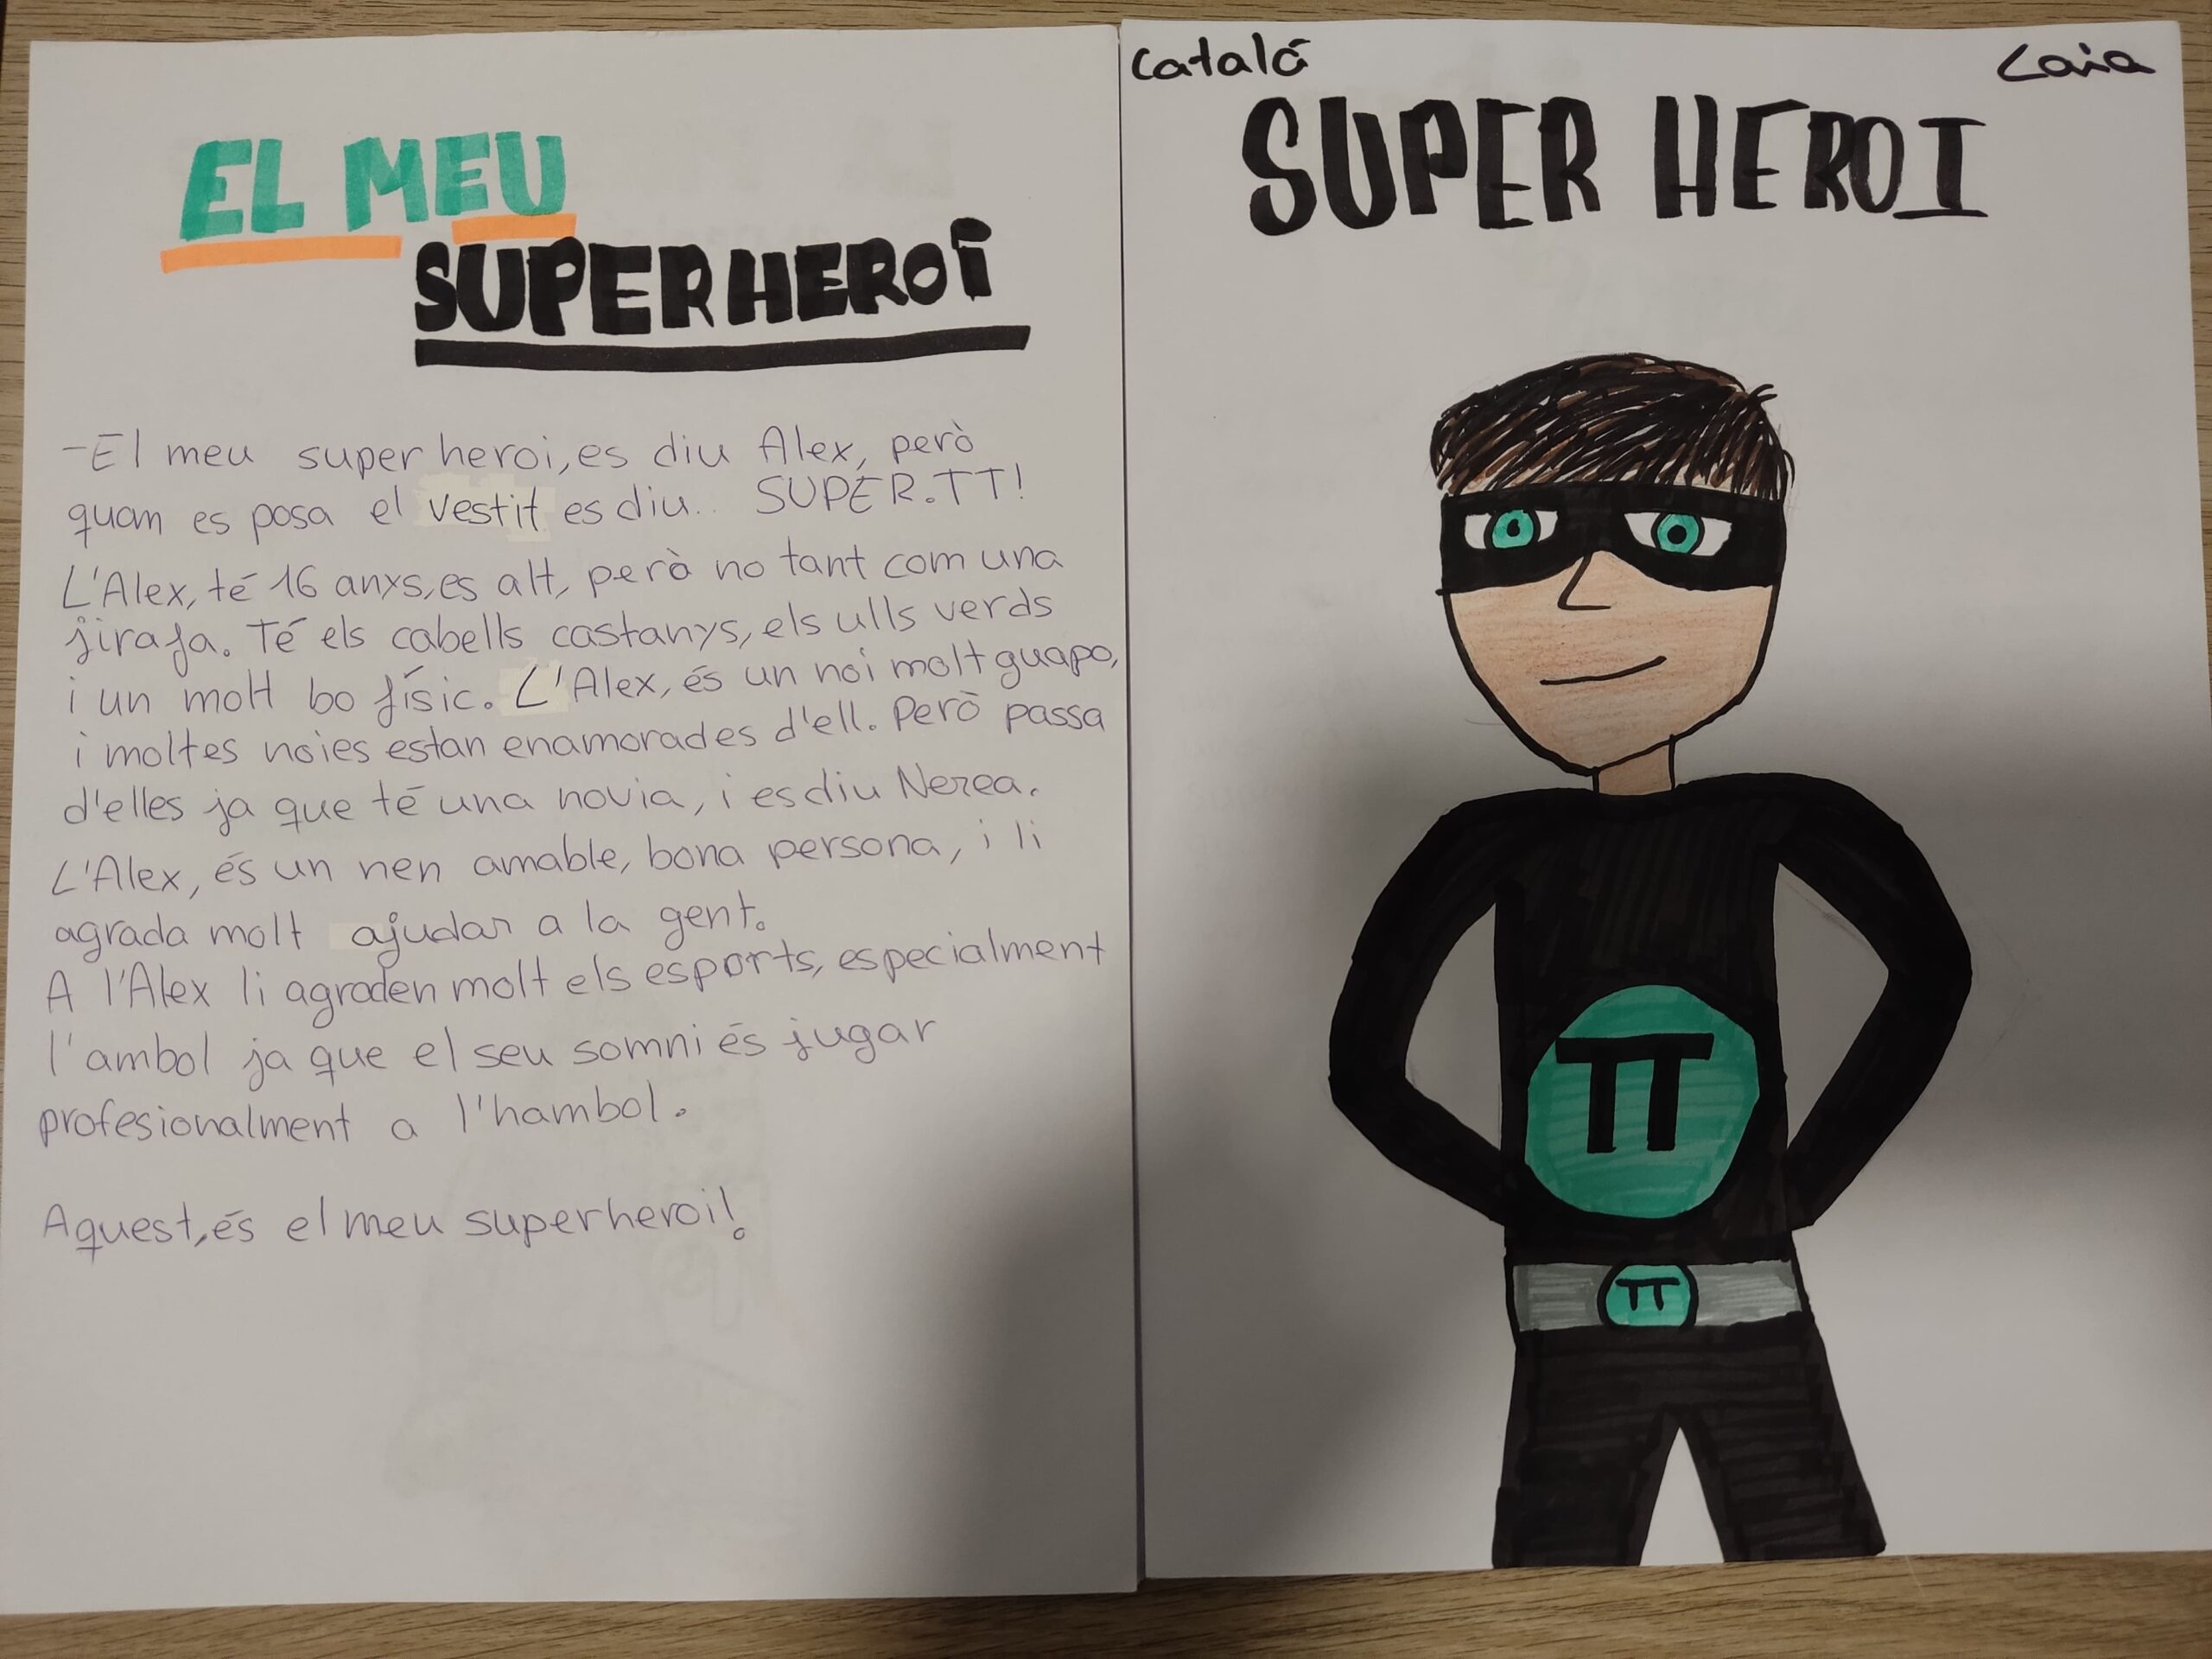 EL MEU
SUPERHEROI
-El meu super heroi, es diu Alex, però
quam es posa el vestit es diu.. SUPER.TT!
L'Alex, té 16 anxs, es alt, però no tant com una
jirafa. Té els cabells castanys, els ulls verds
i un molt bo físic. L'Alex, és un noi molt guapo,
i moltes noies estan enamorades d'ell. Però passa
d'elles ja que té una novia, i es diu Nerea.
L'Alex, és un nen amable, bona persona, i li
agrada molt ajudar a la gent.
A l'Alex li agraden molt els esports, especialment
l'ambol ja que el seu somni és jugar
profesionalment a l'hambol.
Aquest, és el meu superheroi!
Català
Laia
SUPER HEROI
TT
TT